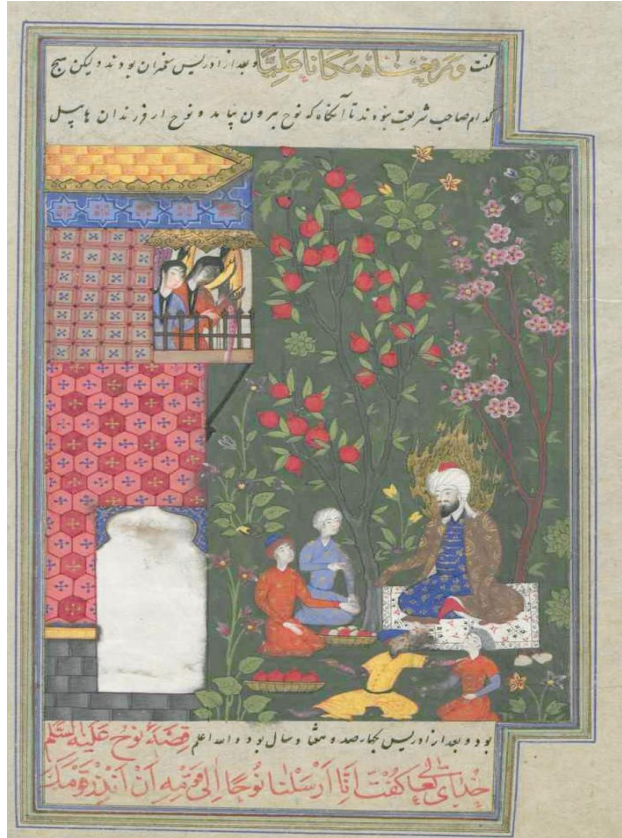 گفت ورفعناه مکانا علیا و بعد از ادریس پیغمبران بودند و لیکن هیچ
کدام صاحب شریعت نبودند تا آنگاه که نوح بیرون بیامد و نوح از فرزندان هابیل
بود و بعد از ادریس بچهارصد و هفتاد سال بود و الله اعلم قصة نوح علیه السلم
خدای تعالی گفت انا ارسلنا نوحا الی قومه ان انذر قومک